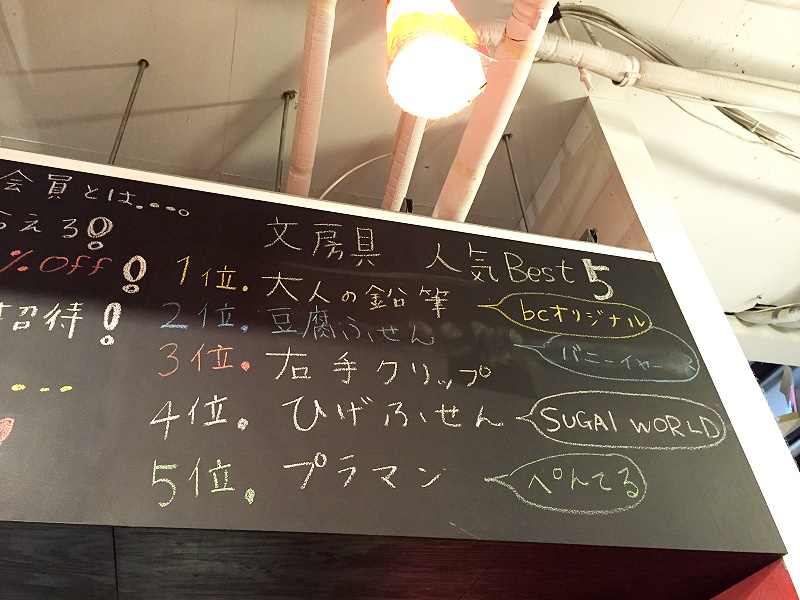 会員とは....
らえる!
%Off!
招待!
文房具 人気Best5
1位. 大人の鉛筆 bcオリジナル
2位. 豆腐ふせん バニーイヤー
3位. 右手クリップ
4位. ひげふせん SUGAI WORLD
5位. プラマン ぺんてる